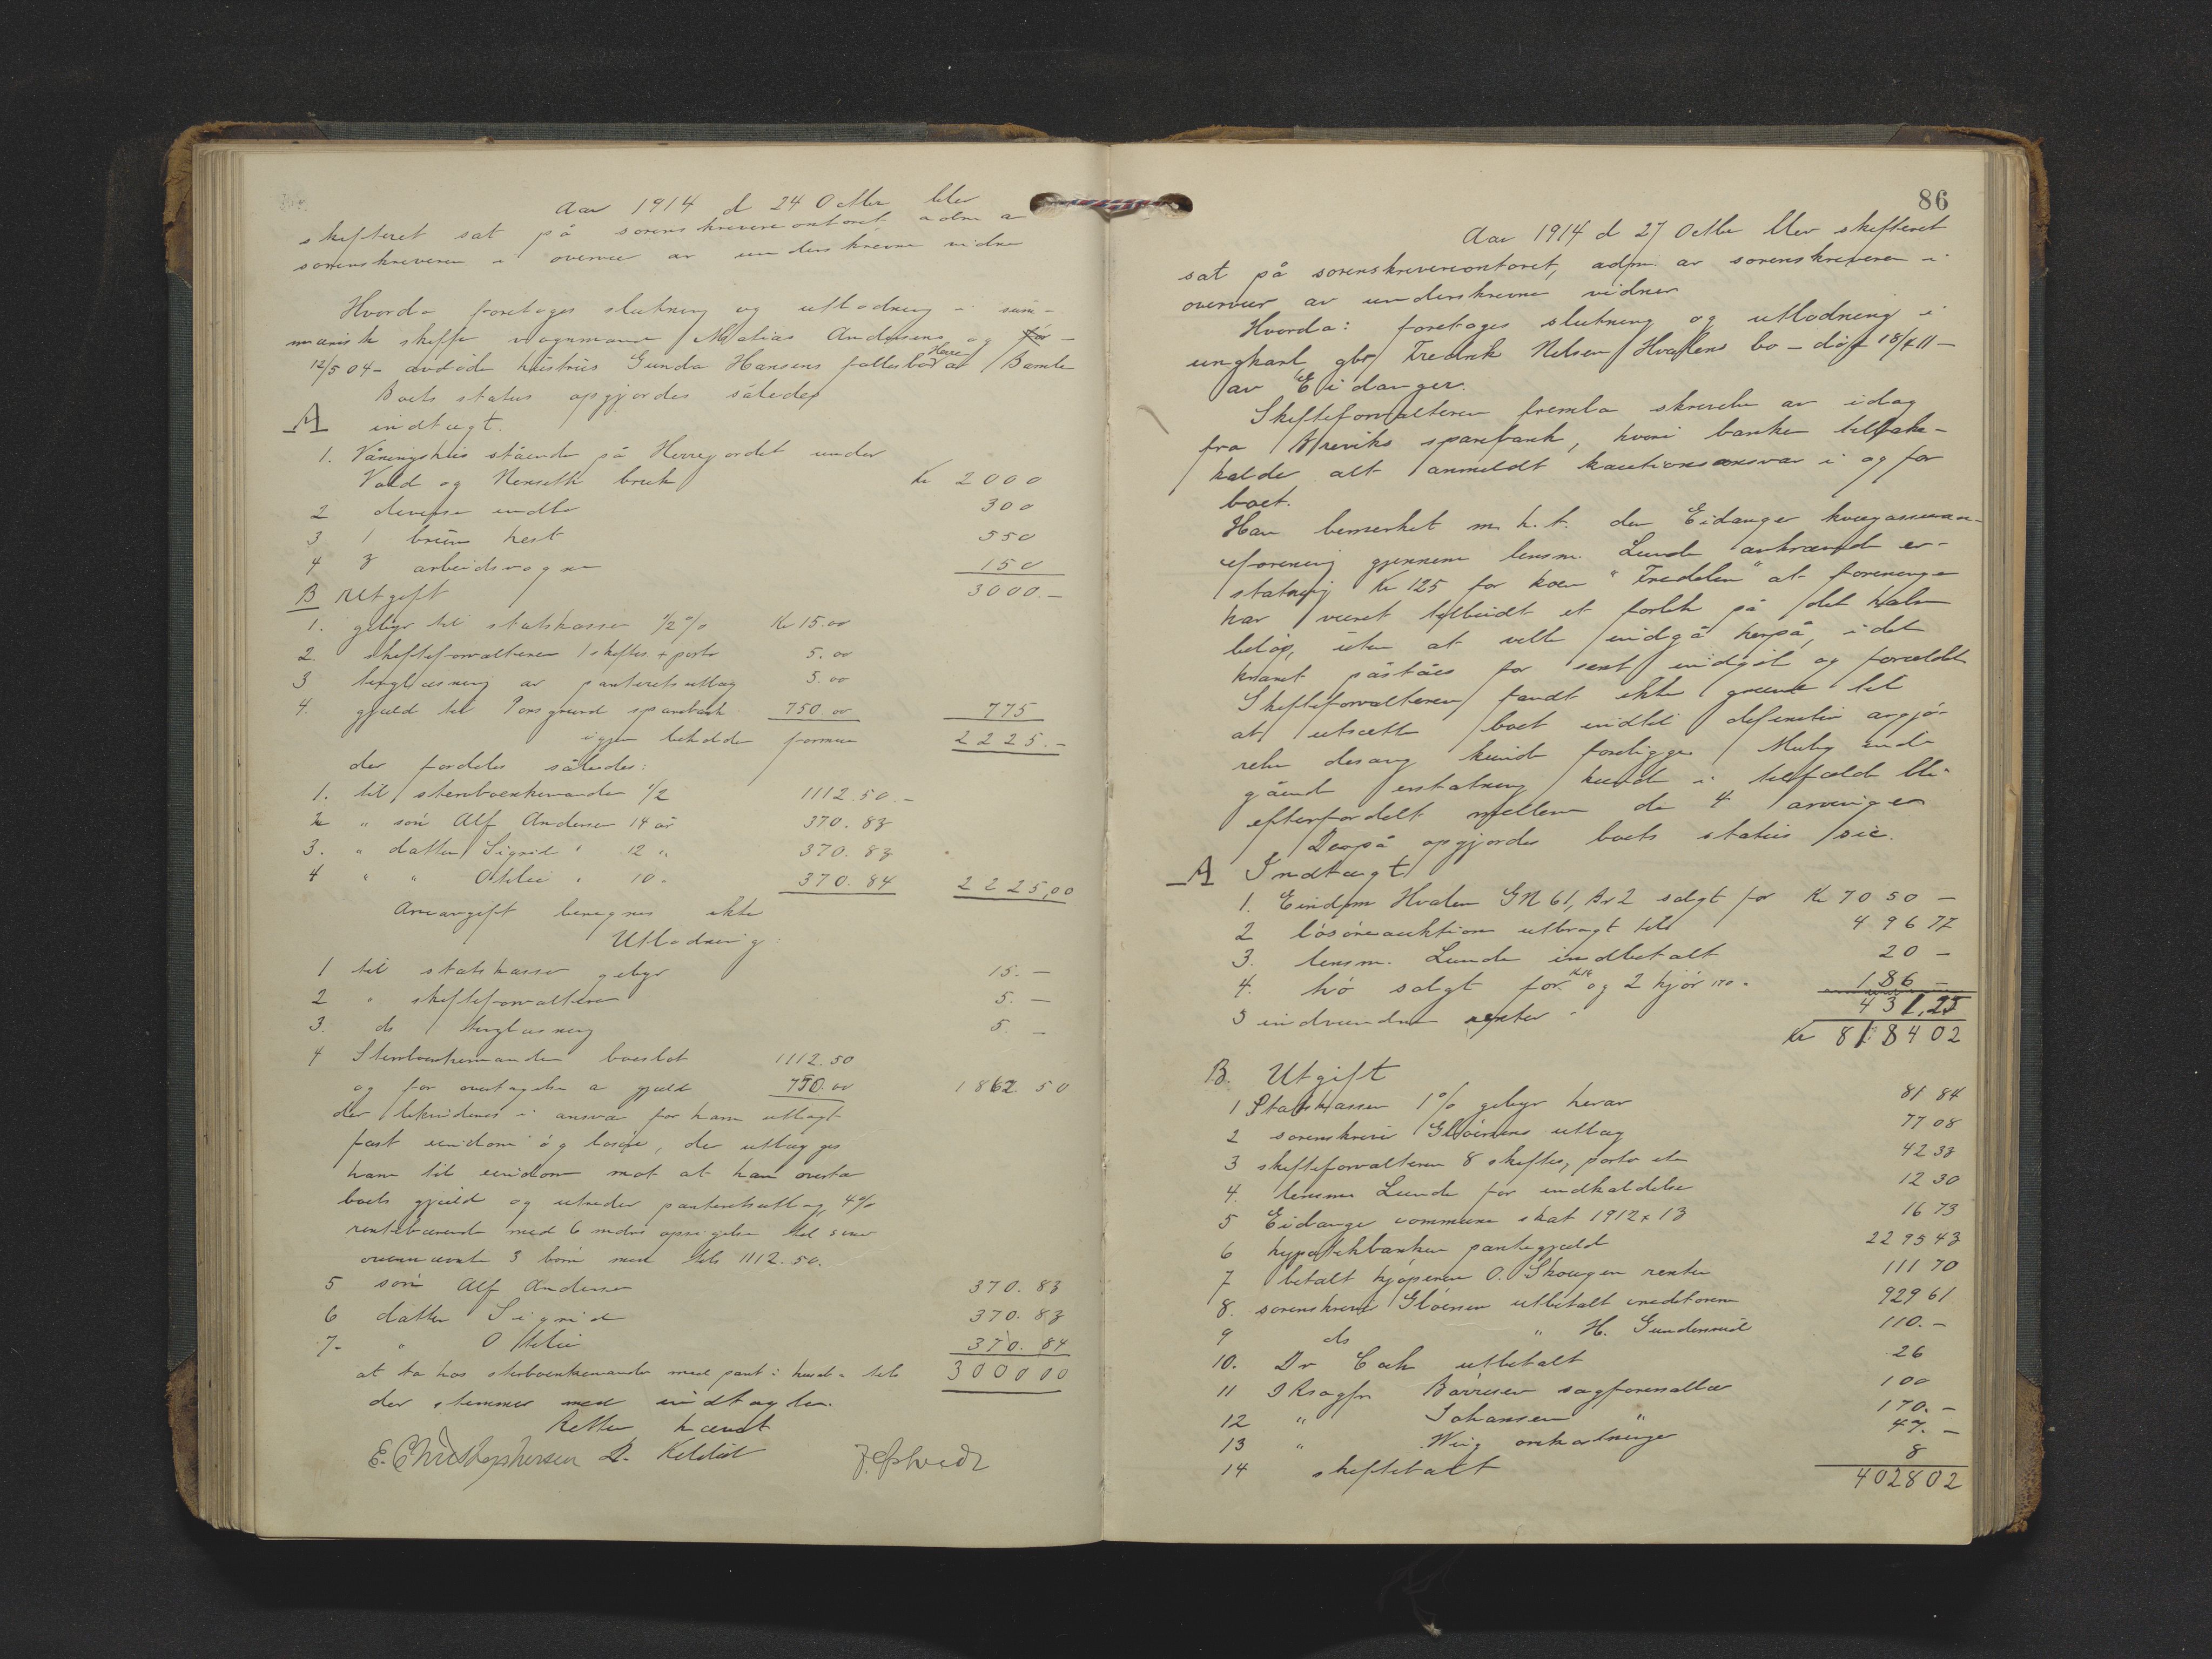 Aar 1914 d 24 Octbr blev
skifteret sat på sorenskrivercontoret adm av
sorenskriveren i overvær av underskrevne vidne
Hvorda foretoges slutning og utlodning i sum-
marisk skifte vognmand Matias Andersens og
12/5 04 - avdöde hustrus Gunda Hansens fællesbo av Herre Bamle
Boets status opgjordes således
A indtægt.
1. Våningshus stående på Herrejordet under
Vold og Nenseth bruk Kr 2000
2 diverse indbo 300
3 1 brun hest 550
4 3 arbeidsvogne 150
3000.-
B Utgift
1. gebyr til statskassen 1/2 % Kr 15.00
2. skifteforvalteren 1 skiftes. + porto 5.00
3 tinglæsning av panteretsutlæg 5.00
4. gjæld til Porsgrund sparebank 750 00 775
igjen beholden formue 2225.-
der fordeles således:
1. til sterboenkemanden 1/2 1112.50.-
2 " sön Alf Andersen 14 år 370.83
3. " datter Sigrid " 12 " 370.83
4 " " Otilie " 10 - 370.84 2225,00
Arveavgift beregnes ikke
Utlodning:
1 til statskassen gebyr 15.-
2 " skifteforvalteren 5.-
3. do tinglæsning 5.-
4 Sterboenkemanden boeslod 1112.50
og for overtagelse av gjæld 750.00 1862.50
der likvideres i ansvar for ham utlagt
fast eiendom og lösöre, der utlægges
ham til eiendom mot at han overta
boets gjæld og utreder panteretsutlæg 4 %
rentebærende med 6 mdrs opsigelse til sine
ovennævnte 3 börn med tils 1112.50.
5 sön Alf Andersen 370.83
6 datter Sigrid 370.83
7- " Otilie 370.84
at ta hos sterboenkemanden med pant i huset - tils 3000 00
der stemmer med indtægten.
Retten hævet
E. Christophersen
86
Aar 1914 d 27 Octbr blev skifteret
sat på sorenskrivercontoret, adm. av sorenskriveren i
overvær av underskrevne vidner
Hvorda: foretoges slutning og utlodning i
ungkarl gbr Fredrik Nilsen Hvalens bo - död 18/4 11 -
av Eidanger.
Skifteforvalteren fremla skrivelse av idag
fra Breviks sparebank, hvori banken tilbake-
kalder alt anmeldt kautionsansvar i og for
boet.
Han bemerket m. h. t. den Eidanger kvægassuran-
ceforening gjennem lensm. Lunde avkrævede er-
statning Kr 125 for koen "Fredelin" at foreningen
har været tilbudt et forlik på det halve
belöp, uten at ville indgå herpå, idet
kravet påståes for sent indgit og forældet
Skifteforvalteren fandt ikke grund til
at utsætte boet indtil definitiv avgjö-
relse desang. kunde foreligge. Mulig ind-
gående erstatning kunde i tilfælde bli
efterfordelt mellem de 4 arvinger
Derpå opgjordes boets status sic.
A Indtægt
1. Eiendom Hvalen GN 61, Br 2 solgt for Kr 7050 -
2 lösöreauktion utbragt til 496 77
3. lensm. Lunde indbetalt 20 -
4. hö solgt for og 2 kjör 170 - 186 -
5 indvundne renter - 431,25
Kr 8184 02
B. Utgift
1 Statskassen 1 % gebyr herav 81 84
2 sorenskriver Glöersens utlæg 77 08
3 skifteforvalteren 8 skiftes, porto etc 42 33
4. lensm Lunde for indkaldelse 12 30
5 Eidanger commune skat 1912 & 13 16 73
6 hypotekbanken pantegjæld 2295 43
7 betalt kjöperen O. Skougen renter 111 70
8. sorenskriver Glöersen utbetalt creditorerne 929 61
9 do " H. Gundersrud 110.-
10. Dr Cock utbetalt 26
11 O Rsagfr Börresen sagförersallær 100
12 " Johansen " 170.-
13 " Wiig omkostninger 47.-
14 skiftetakt 8
4028 02